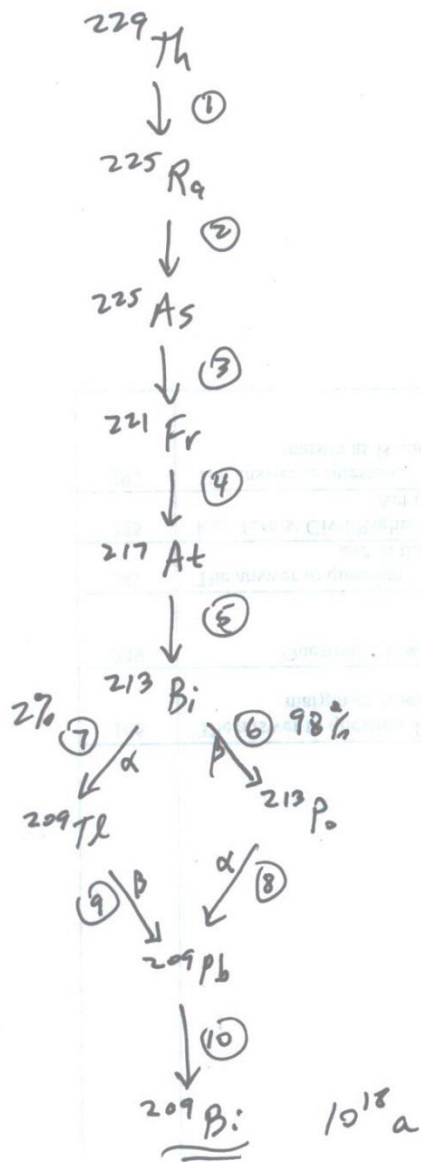 229Th
↓ ①
225Ra
↓ ②
225As
↓ ③
221Fr
↓ ④
217At
↓ ⑤
213Bi
2% ⑦ α β ⑥ 98%
209Tl 213Po
⑨ β α ⑧
209Pb
↓ ⑩
209Bi 10^18 a